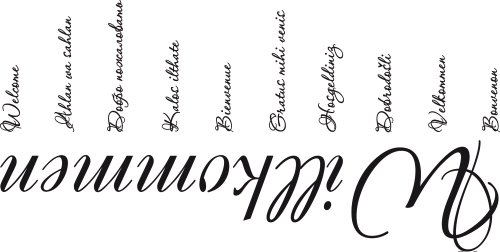 Welcome
Ahlan va sahlan
Добро пожаловать
Kalos ilthate
Bienvenue
Gratus mihi venis
Hosgeldiniz
Dobrodošli
Velkommen
Bonvenon
Willkommen